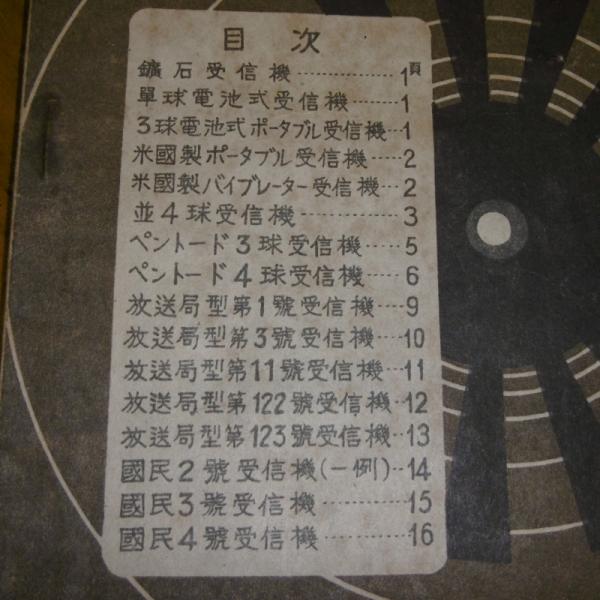 目次
鑛石受信機……………1頁
單球電池式受信機……1
3球電池式ポータブル受信機…1
米國製ポータブル受信機……2
米國製バイブレーター受信機…2
並4球受信機…………3
ペントード3球受信機……5
ペントード4球受信機……6
放送局型第1號受信機…9
放送局型第3號受信機…10
放送局型第11號受信機…11
放送局型第122號受信機…12
放送局型第123號受信機…13
國民2號受信機(一例)…14
國民3號受信機…………15
國民4號受信機…………16